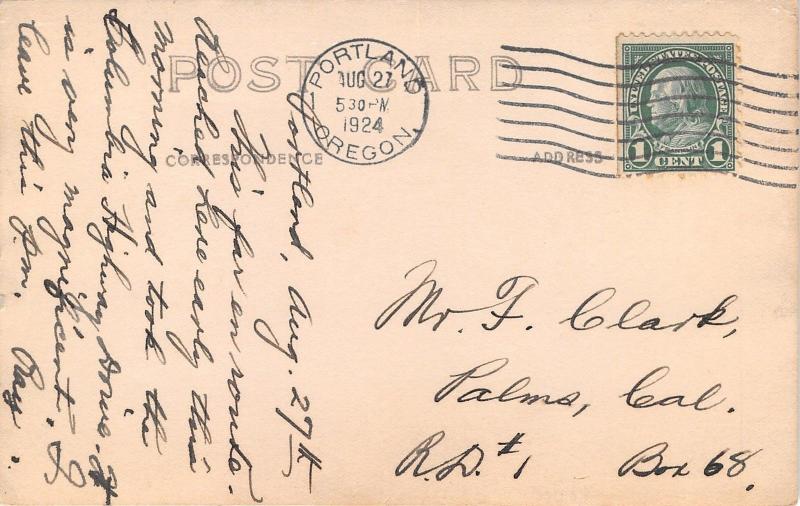 POST CARD
CORRESPONDENCE
ADDRESS
PORTLAND
AUG 27
5 30 PM
1924
OREGON
UNITED STATES POSTAGE
FRANKLIN
1 CENT 1
Portland, Aug. 27th
This far en route.
Reached here early this
morning and took the
Columbia Highway Drive. It
is very magnificent. I
leave this P.m. Ray.
Mr. F. Clark,
Palms, Cal.
R.D. #1 Box 68.